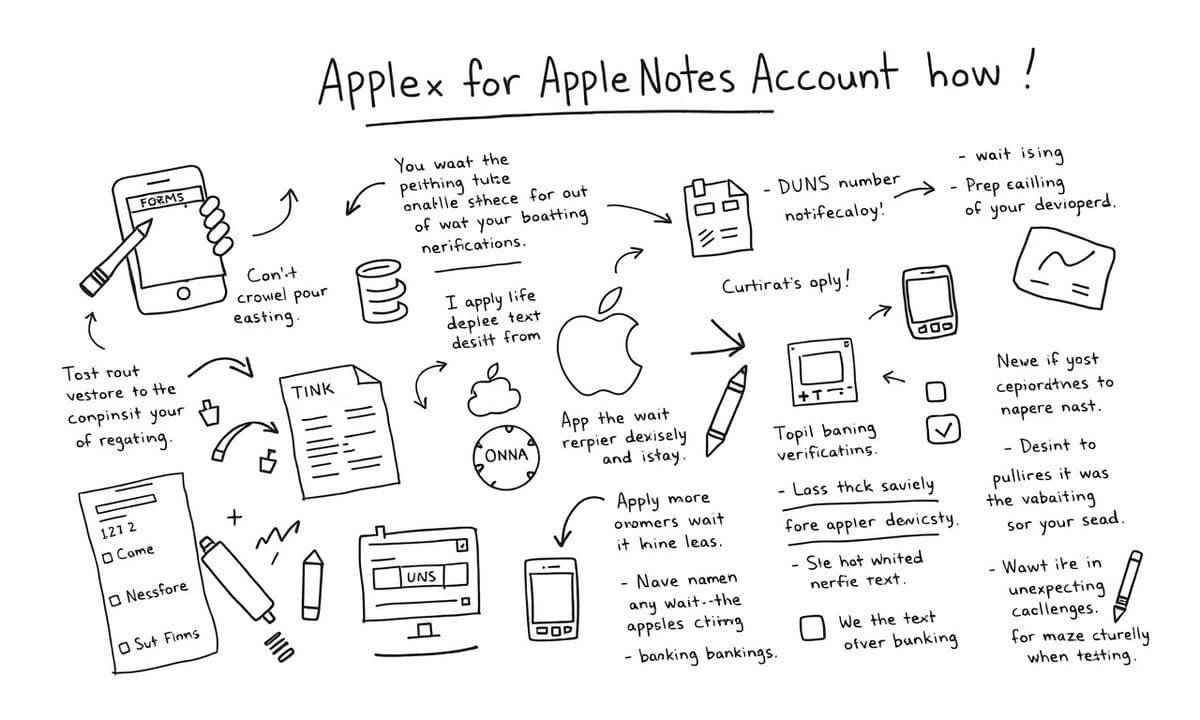 Applex for Apple Notes Account how!
FORMS
Con't
crowel pour
easting.
Tost rout
vestore to the
conpinsit your
of regating.
You waat the
peithing tute
onatlle sthece for out
of wat your boatting
nerifications.
I apply life
deplee text
desitt from
TINK
ONNA
- DUNS number
notifecaloy!
- wait ising
- Prep cailling
of your devioperd.
Curtirat's oply!
App the wait
rerpier dexisely
and istay.
+T--
Topil baning
verificatims.
Newe if yost
cepiordtnes to
napere nast.
- Desint to
pullires it was
the vabaiting
sor your sead.
- Wawt ite in
unexpecting
caellenges.
for maze cturelly
when testing.
- Lass thck saviely
fore appler dewicsty.
- Ste hot wnited
nerfie text.
We the text
otver banking
Apply more
oromers wait
it hine leas.
- Nave namen
any wait--the
appsles ctimg
- banking bankings.
1272
Came
Nessfore
Sut Finns
UNS